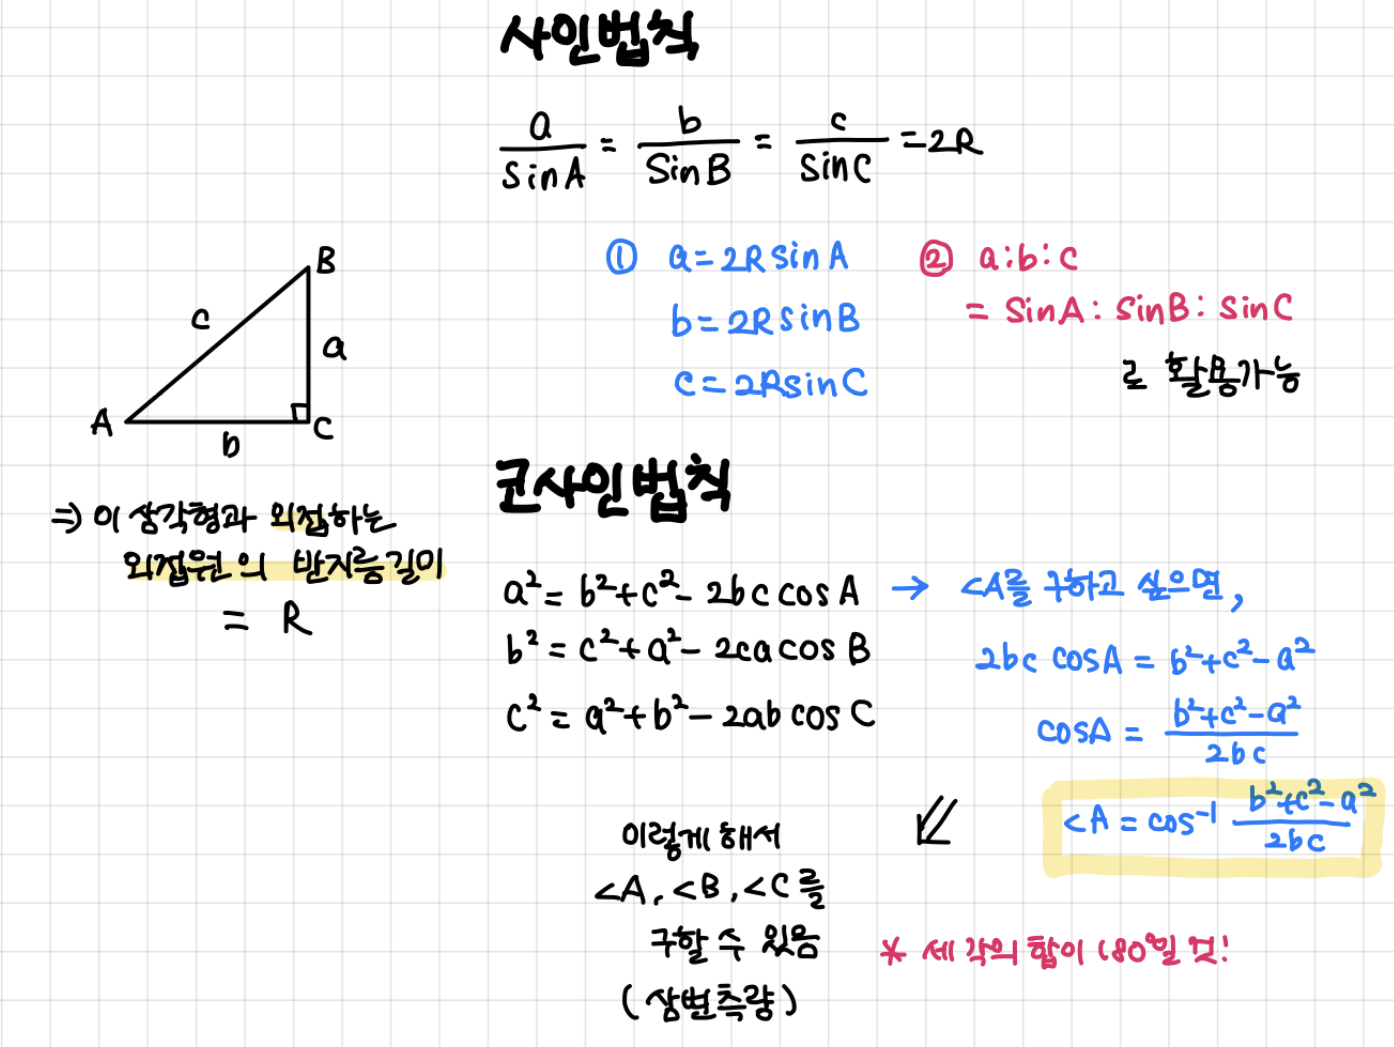 사인법칙
a/sinA = b/sinB = c/sinC = 2R
① a=2RsinA
b=2RsinB
c=2RsinC
② a:b:c
= sinA: sinB: sinC
로 활용가능
B
c
a
A
b
C
⇒ 이 삼각형과 외접하는
외접원의 반지름길이
= R
코사인법칙
a²= b²+c²- 2bc cosA
b²= c²+a²- 2ca cosB
c²= a²+b²- 2ab cosC
→ <A를 구하고 싶으면,
2bc cosA = b²+c²-a²
cosA = b²+c²-a²/2bc
<A = cos⁻¹ b²+c²-a²/2bc
이렇게 해서
<A, <B, <C를
구할 수 있음
(삼변측량)
* 세 각의 합이 180°일 것!